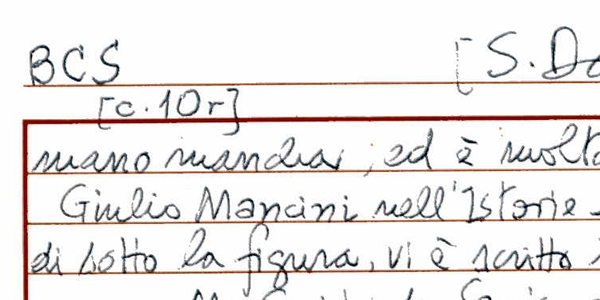 BCS [S. Do
[c. 10r]
mano manca ; ed è molto
Giulio Mancini nell'Istorie
di sotto la figura, vi è scritto